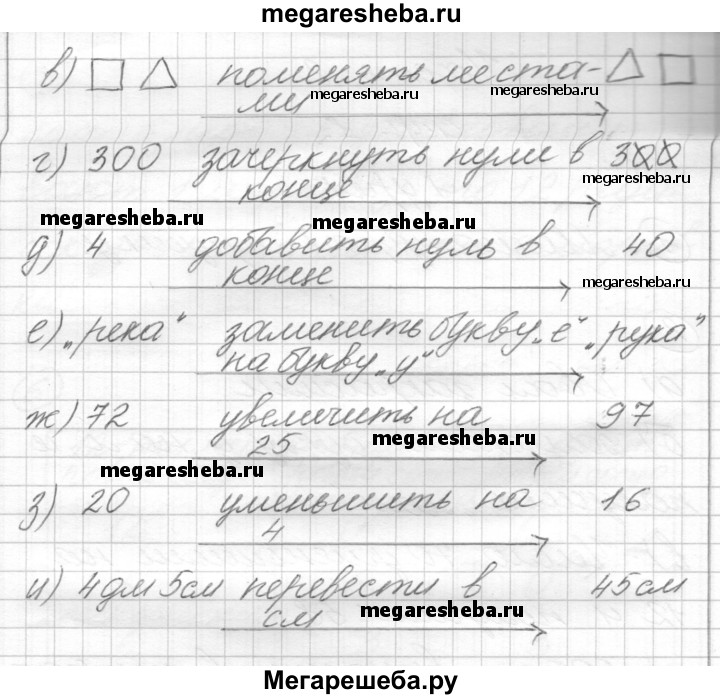 megaresheba.ru
в) поменять места-
ми
megaresheba.ru
megaresheba.ru
г) 300 зачеркнуть нули в 300
конце
megaresheba.ru
megaresheba.ru
д) 4 добавить нуль в 40
конце
megaresheba.ru
е) „река“ заменить букву „е“ „рука“
на букву „у“
ж) 72 увеличить на 97
25
megaresheba.ru
megaresheba.ru
з) 20 уменьшить на 16
4
и) 4дм 5см перевести в 45см
см
megaresheba.ru
Мегарешеба.ру